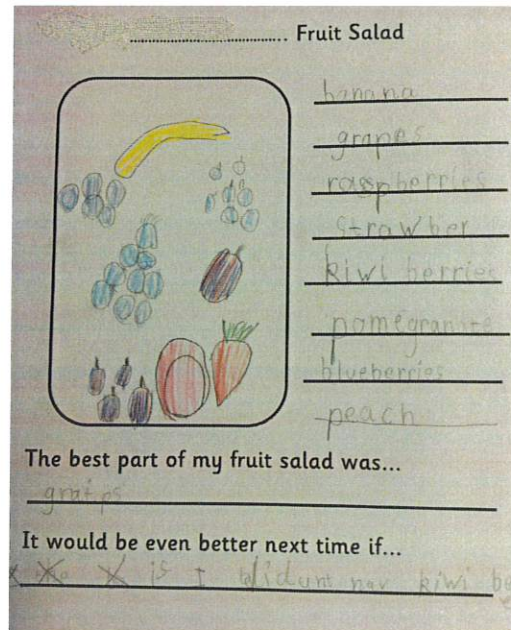 Fruit Salad
banana
grapes
raspberries
strawber
kiwi berries
pomegranite
blueberries
peach
The best part of my fruit salad was...
graips
It would be even better next time if...
is I didunt hav kiwi be